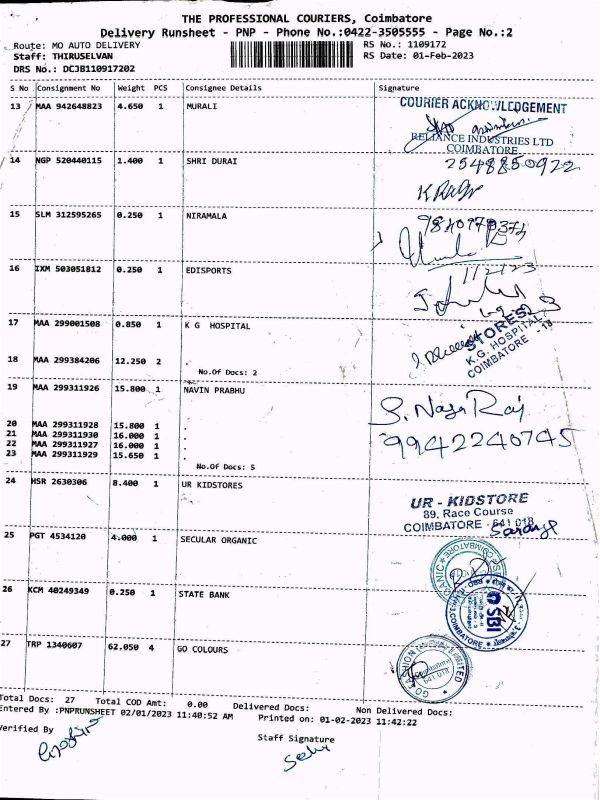 THE PROFESSIONAL COURIERS, Coimbatore
Delivery Runsheet - PNP - Phone No.:0422-3505555 - Page No.:2
Route: MO AUTO DELIVERY RS No.: 1109172
Staff: THIRUSELVAN RS Date: 01-Feb-2023
DRS No.: DCJB110917202
S No Consignment No Weight PCS Consignee Details Signature
13 MAA 942648823 4.650 1 MURALI
COURIER ACKNOWLEDGEMENT
RELIANCE INDUSTRIES LTD
COIMBATORE
14 NGP 520440115 1.400 1 SHRI DURAI 2548850922
15 SLM 312595265 0.250 1 NIRAMALA
16 IXM 503051812 0.250 1 EDISPORTS
1/2/23
17 MAA 299001508 0.850 1 K G HOSPITAL
STORES
K.G. HOSPITAL
COIMBATORE - 18
18 MAA 299384206 12.250 2 .
No.Of Docs: 2
19 MAA 299311926 15.800 1 NAVIN PRABHU
S. Naga Raj
9942240745
20 MAA 299311928 15.800 1 .
21 MAA 299311930 16.000 1 .
22 MAA 299311927 16.000 1 .
23 MAA 299311929 15.650 1 .
No.Of Docs: 5
24 HSR 2630306 8.400 1 UR KIDSTORES
UR - KIDSTORE
89, Race Course
COIMBATORE - 641 018
25 PGT 4534120 4.000 1 SECULAR ORGANIC
COIMBATORE
26 KCM 40249349 0.250 1 STATE BANK
SBI
COIMBATORE
27 TRP 1340607 62.050 4 GO COLOURS
LIMITED
Total Docs: 27 Total COD Amt: 0.00 Delivered Docs: Non Delivered Docs:
Entered By :PNPRUNSHEET 02/01/2023 11:40:52 AM Printed on: 01-02-2023 11:42:22
Verified By Staff Signature